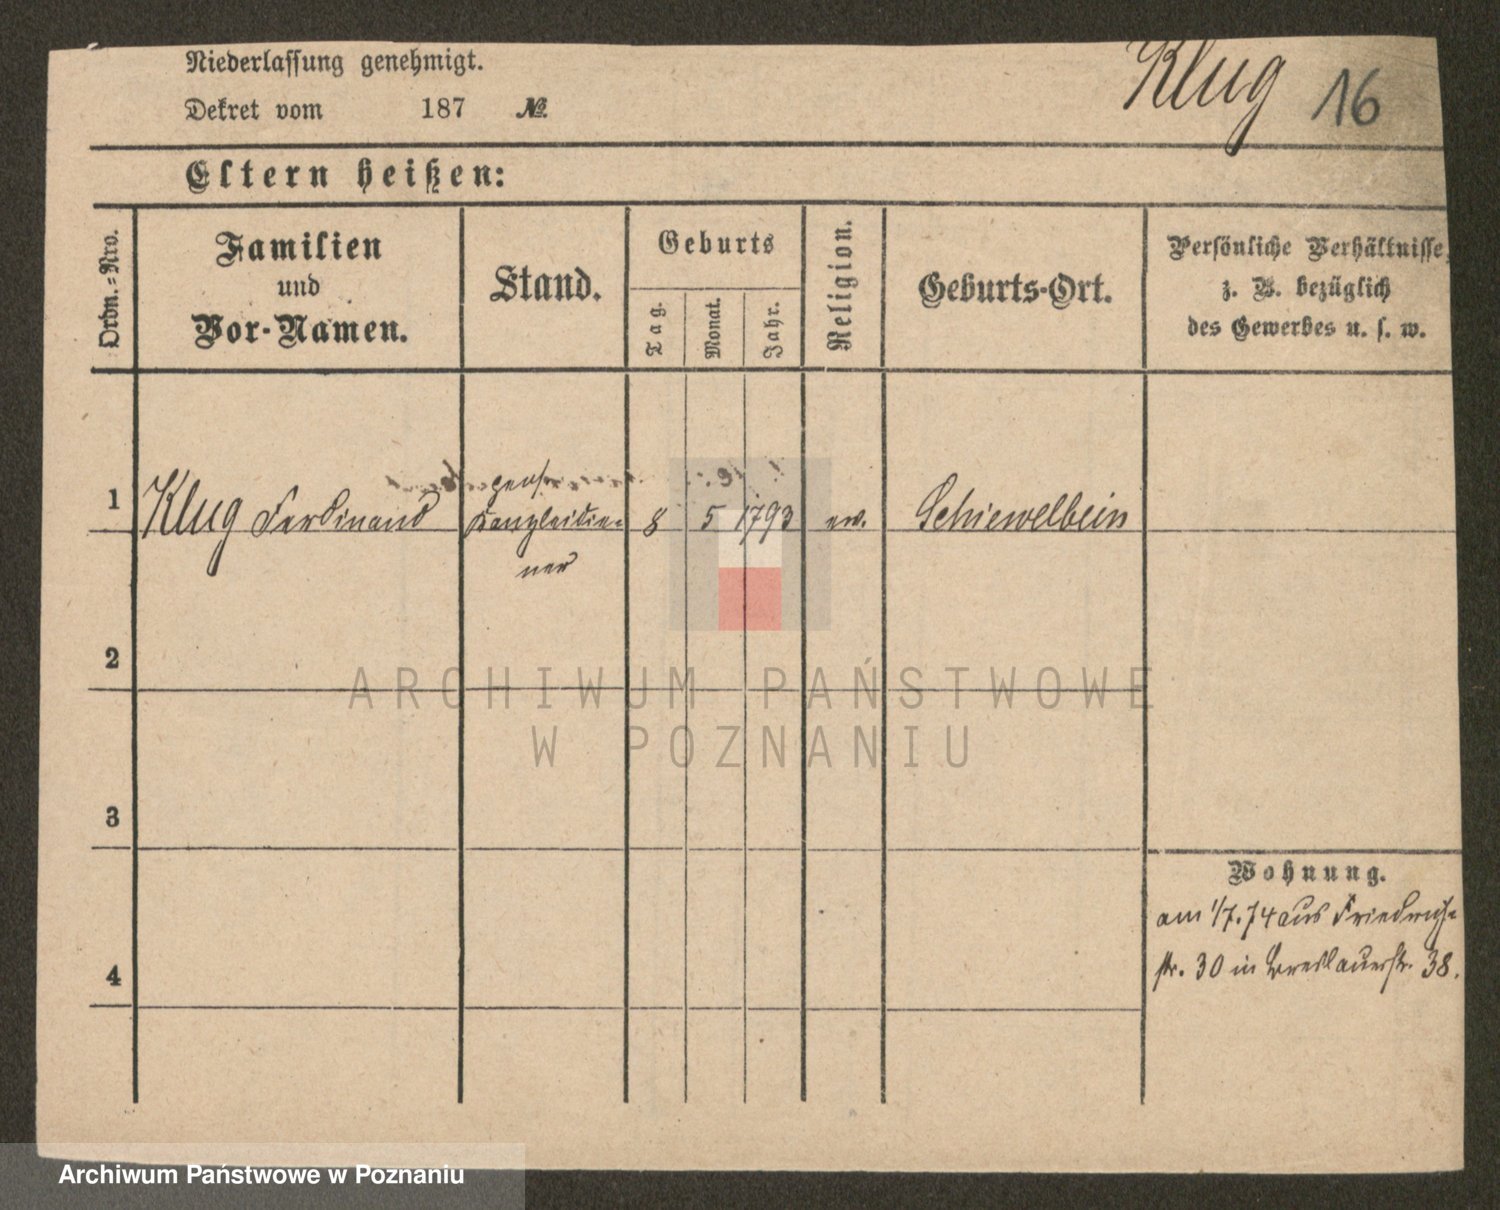 Niederlassung genehmigt.
Klug 16
Dekret vom 187 №
Eltern heißen:
Ordn.=Nro.
Familien
und
Vor-Namen.
Stand.
Geburts
Tag.
Monat.
Jahr.
Religion.
Geburts-Ort.
Persönliche Verhältnisse,
z. B. bezüglich
des Gewerbes u. s. w.
1 Klug Ferdinand pens. Kanzleidie= 8 5 1793 ev. Schiewelbein
ner
2
ARCHIWUM PAŃSTWOWE
W POZNANIU
3
Wohnung.
am 1/7.74 aus Friedrichs=
str. 30 in Breslauerstr. 38.
4
Archiwum Państwowe w Poznaniu